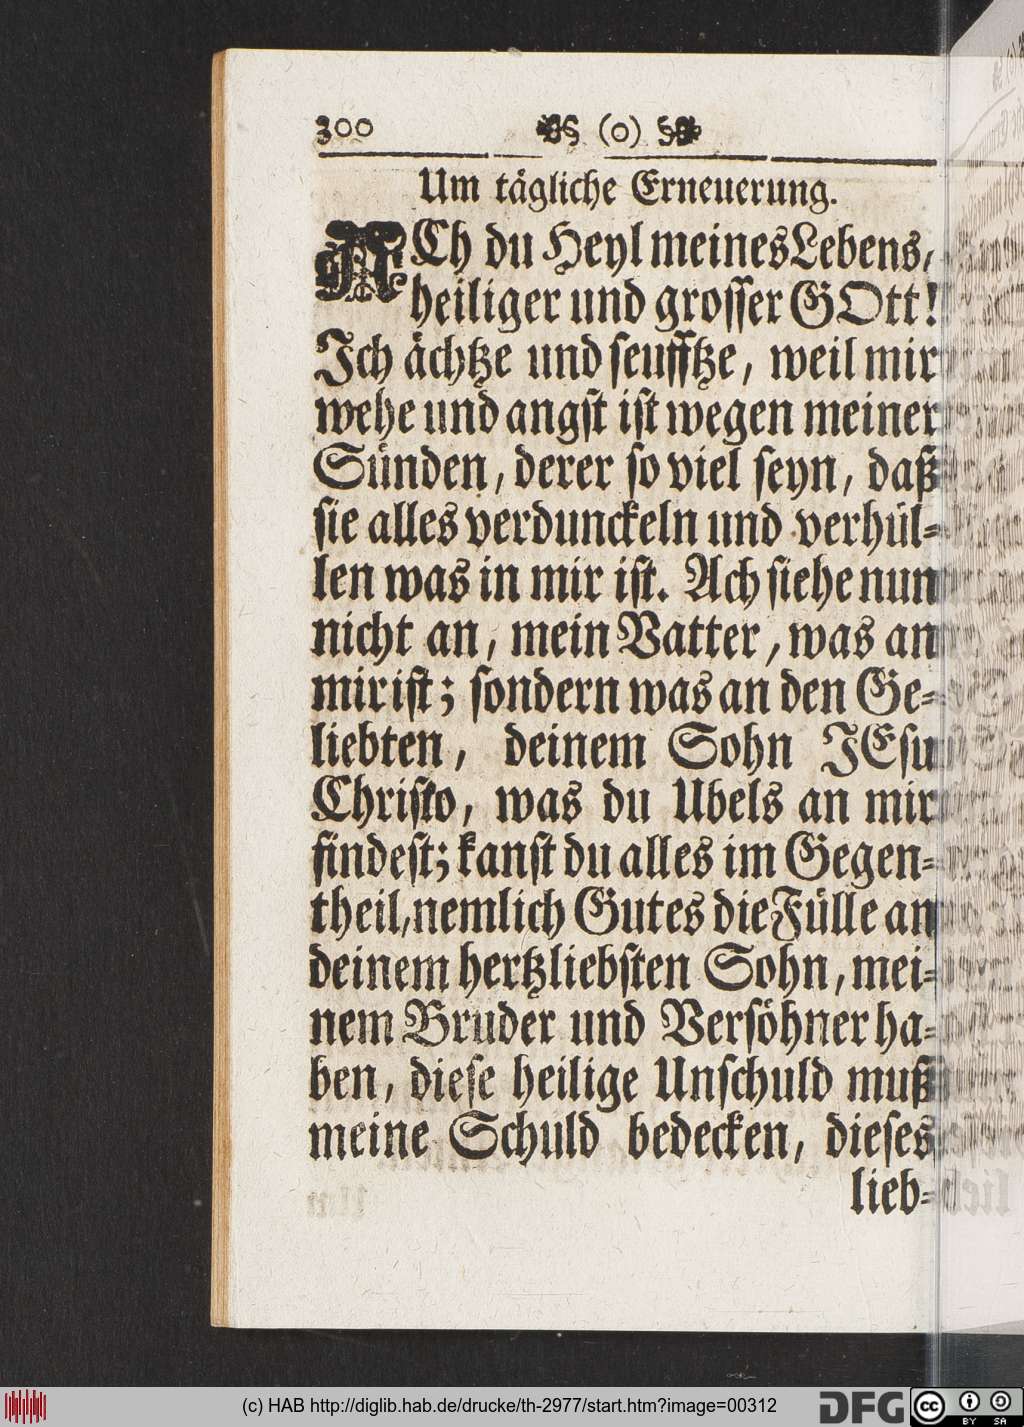 300 (o)
Um tägliche Erneuerung.
ACh du Heyl meines Lebens,
heiliger und grosser GOtt!
Ich ächtze und seufftze, weil mir
wehe und angst ist wegen meiner
Sünden, derer so viel seyn, daß
sie alles verdunckeln und verhül-
len was in mir ist. Ach siehe nun
nicht an, mein Vatter, was an
mir ist; sondern was an den Ge-
liebten, deinem Sohn JEsu
Christo, was du Ubels an mir
findest; kanst du alles im Gegen-
theil, nemlich Gutes die Fülle an
deinem hertzliebsten Sohn, mei-
nem Bruder und Versöhner ha-
ben, diese heilige Unschuld muß
meine Schuld bedecken, dieses
lieb-
(c) HAB http://diglib.hab.de/drucke/th-2977/start.htm?image=00312
DFG
cc BY SA